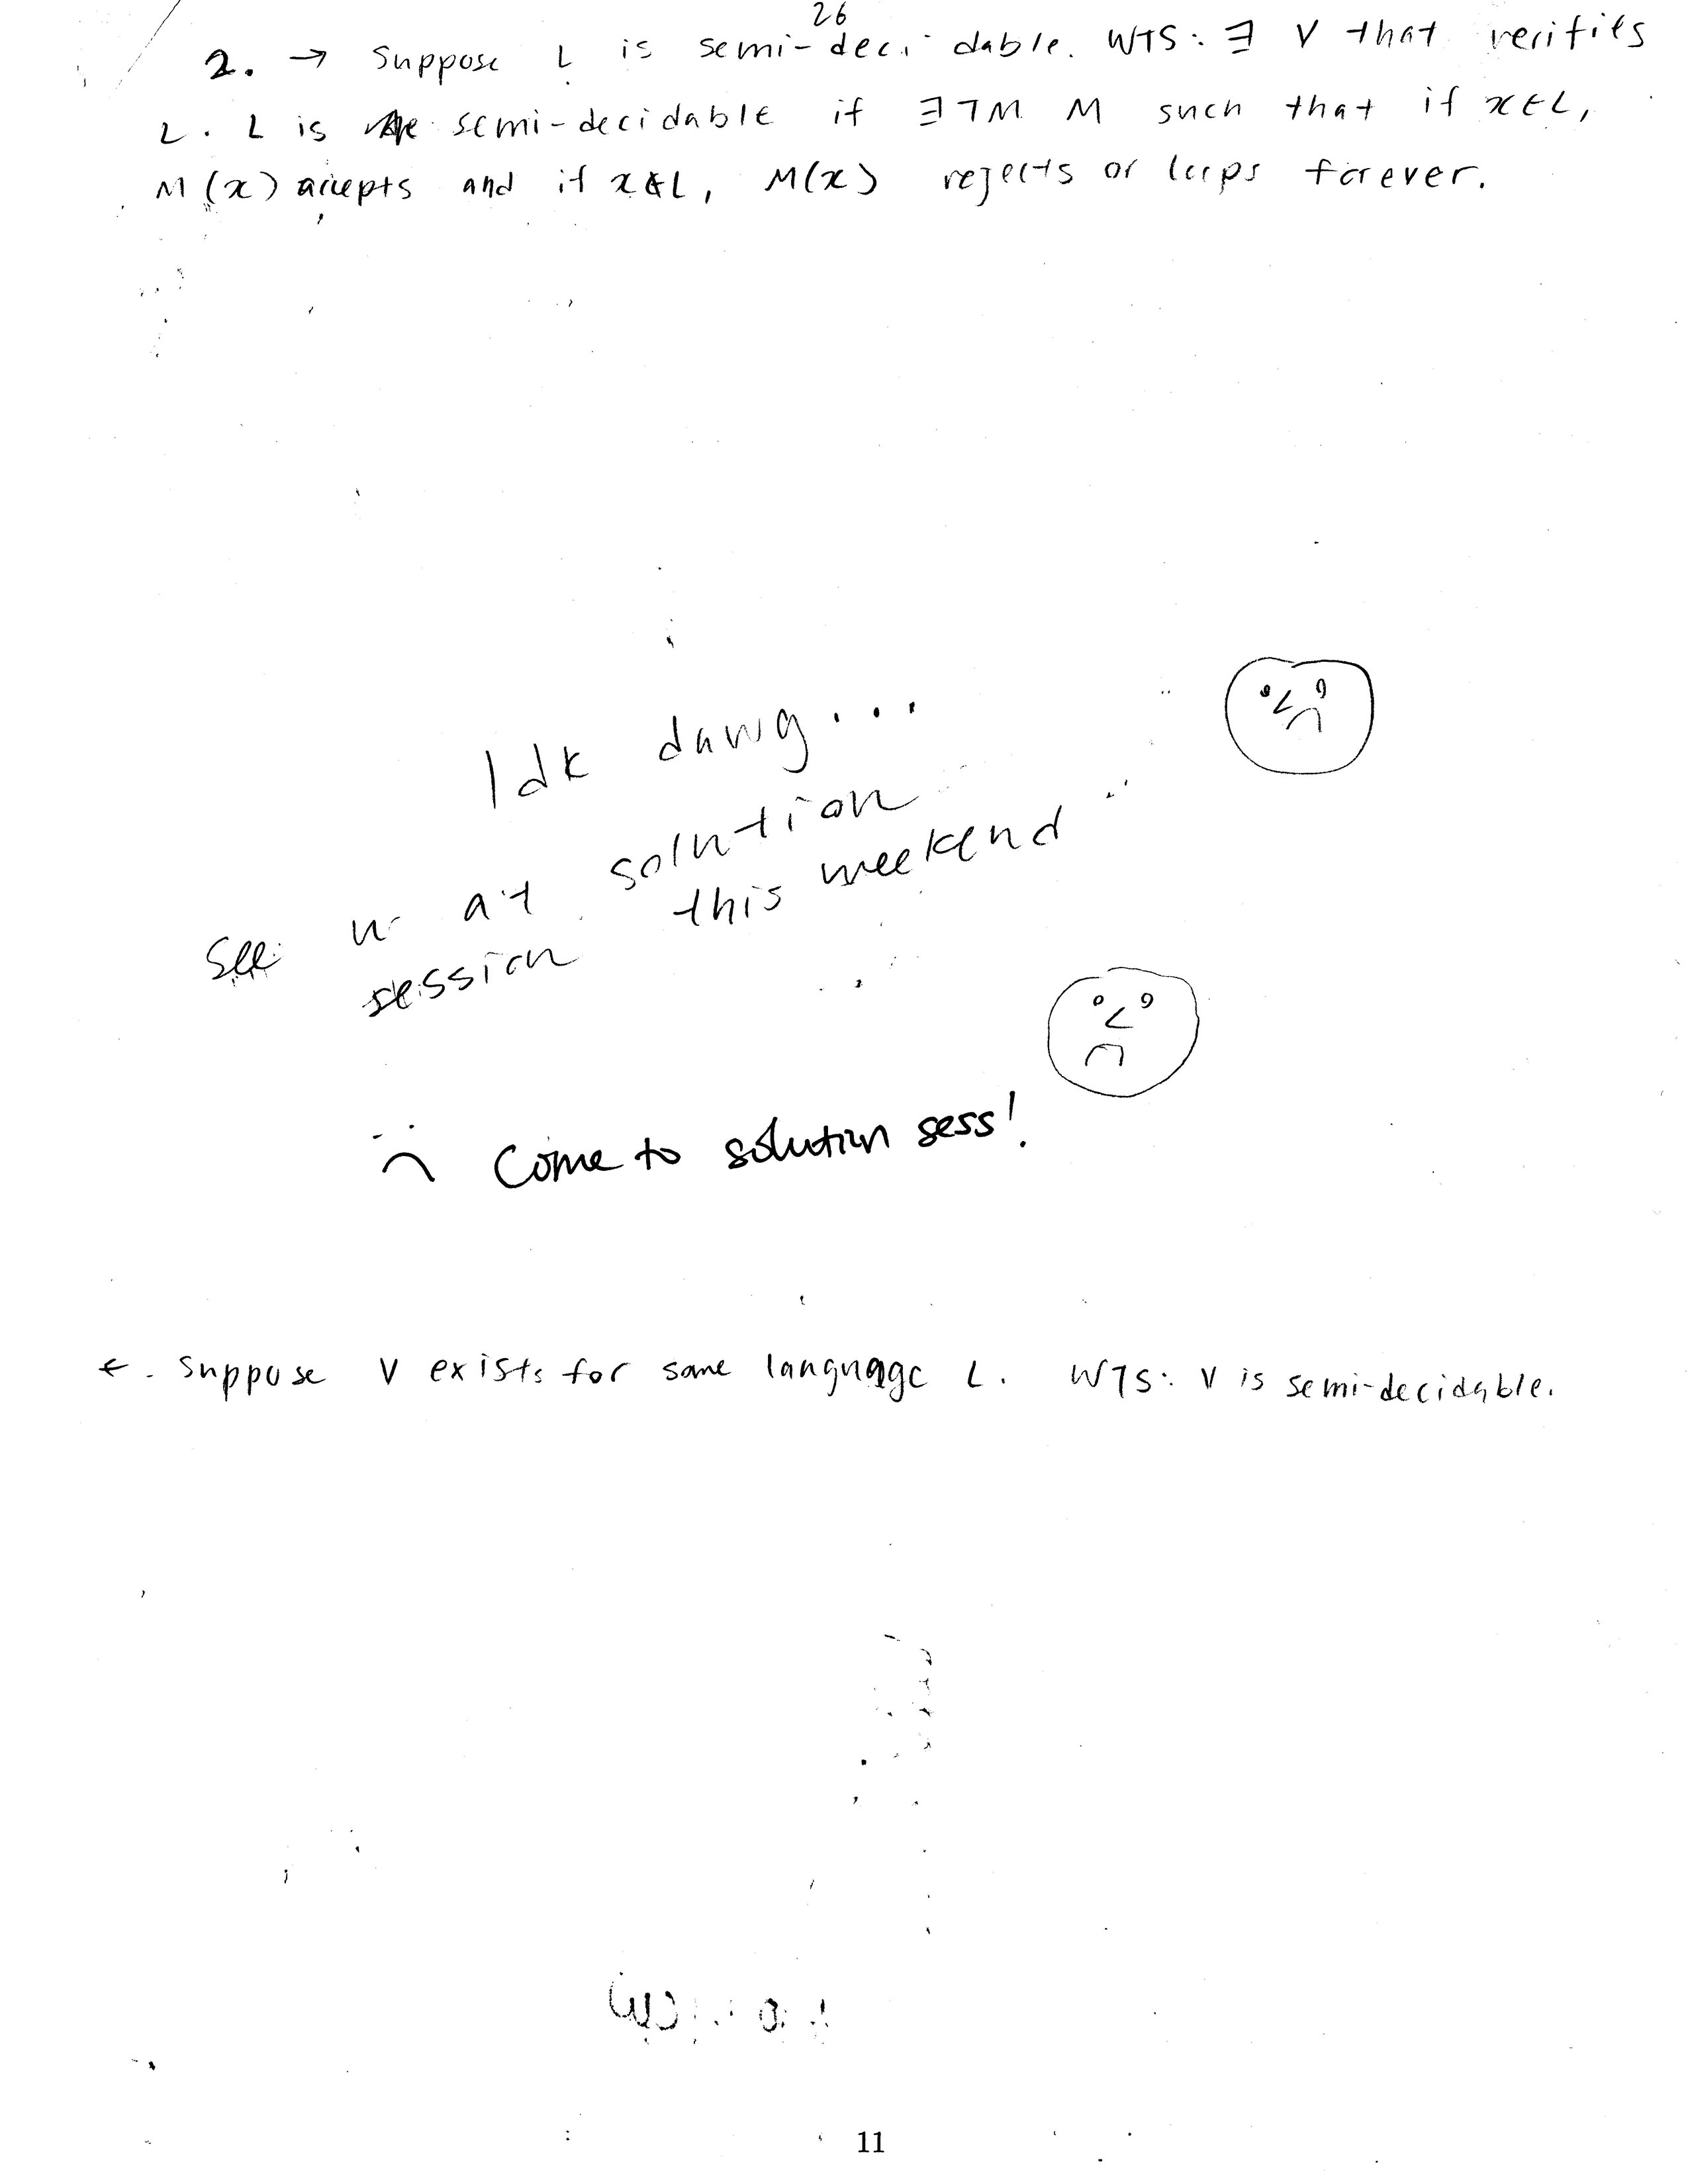 26
2. → Suppose L is semi-decidable. WTS: ∃ V that verifies
L. L is semi-decidable if ∃ TM M such that if x∈L,
M(x) accepts and if x∉L, M(x) rejects or loops forever.
Idk dawg...
See u at solution
session this weekend
Come to solution sess!
←. Suppose V exists for some language L. WTS: V is semi-decidable.
11